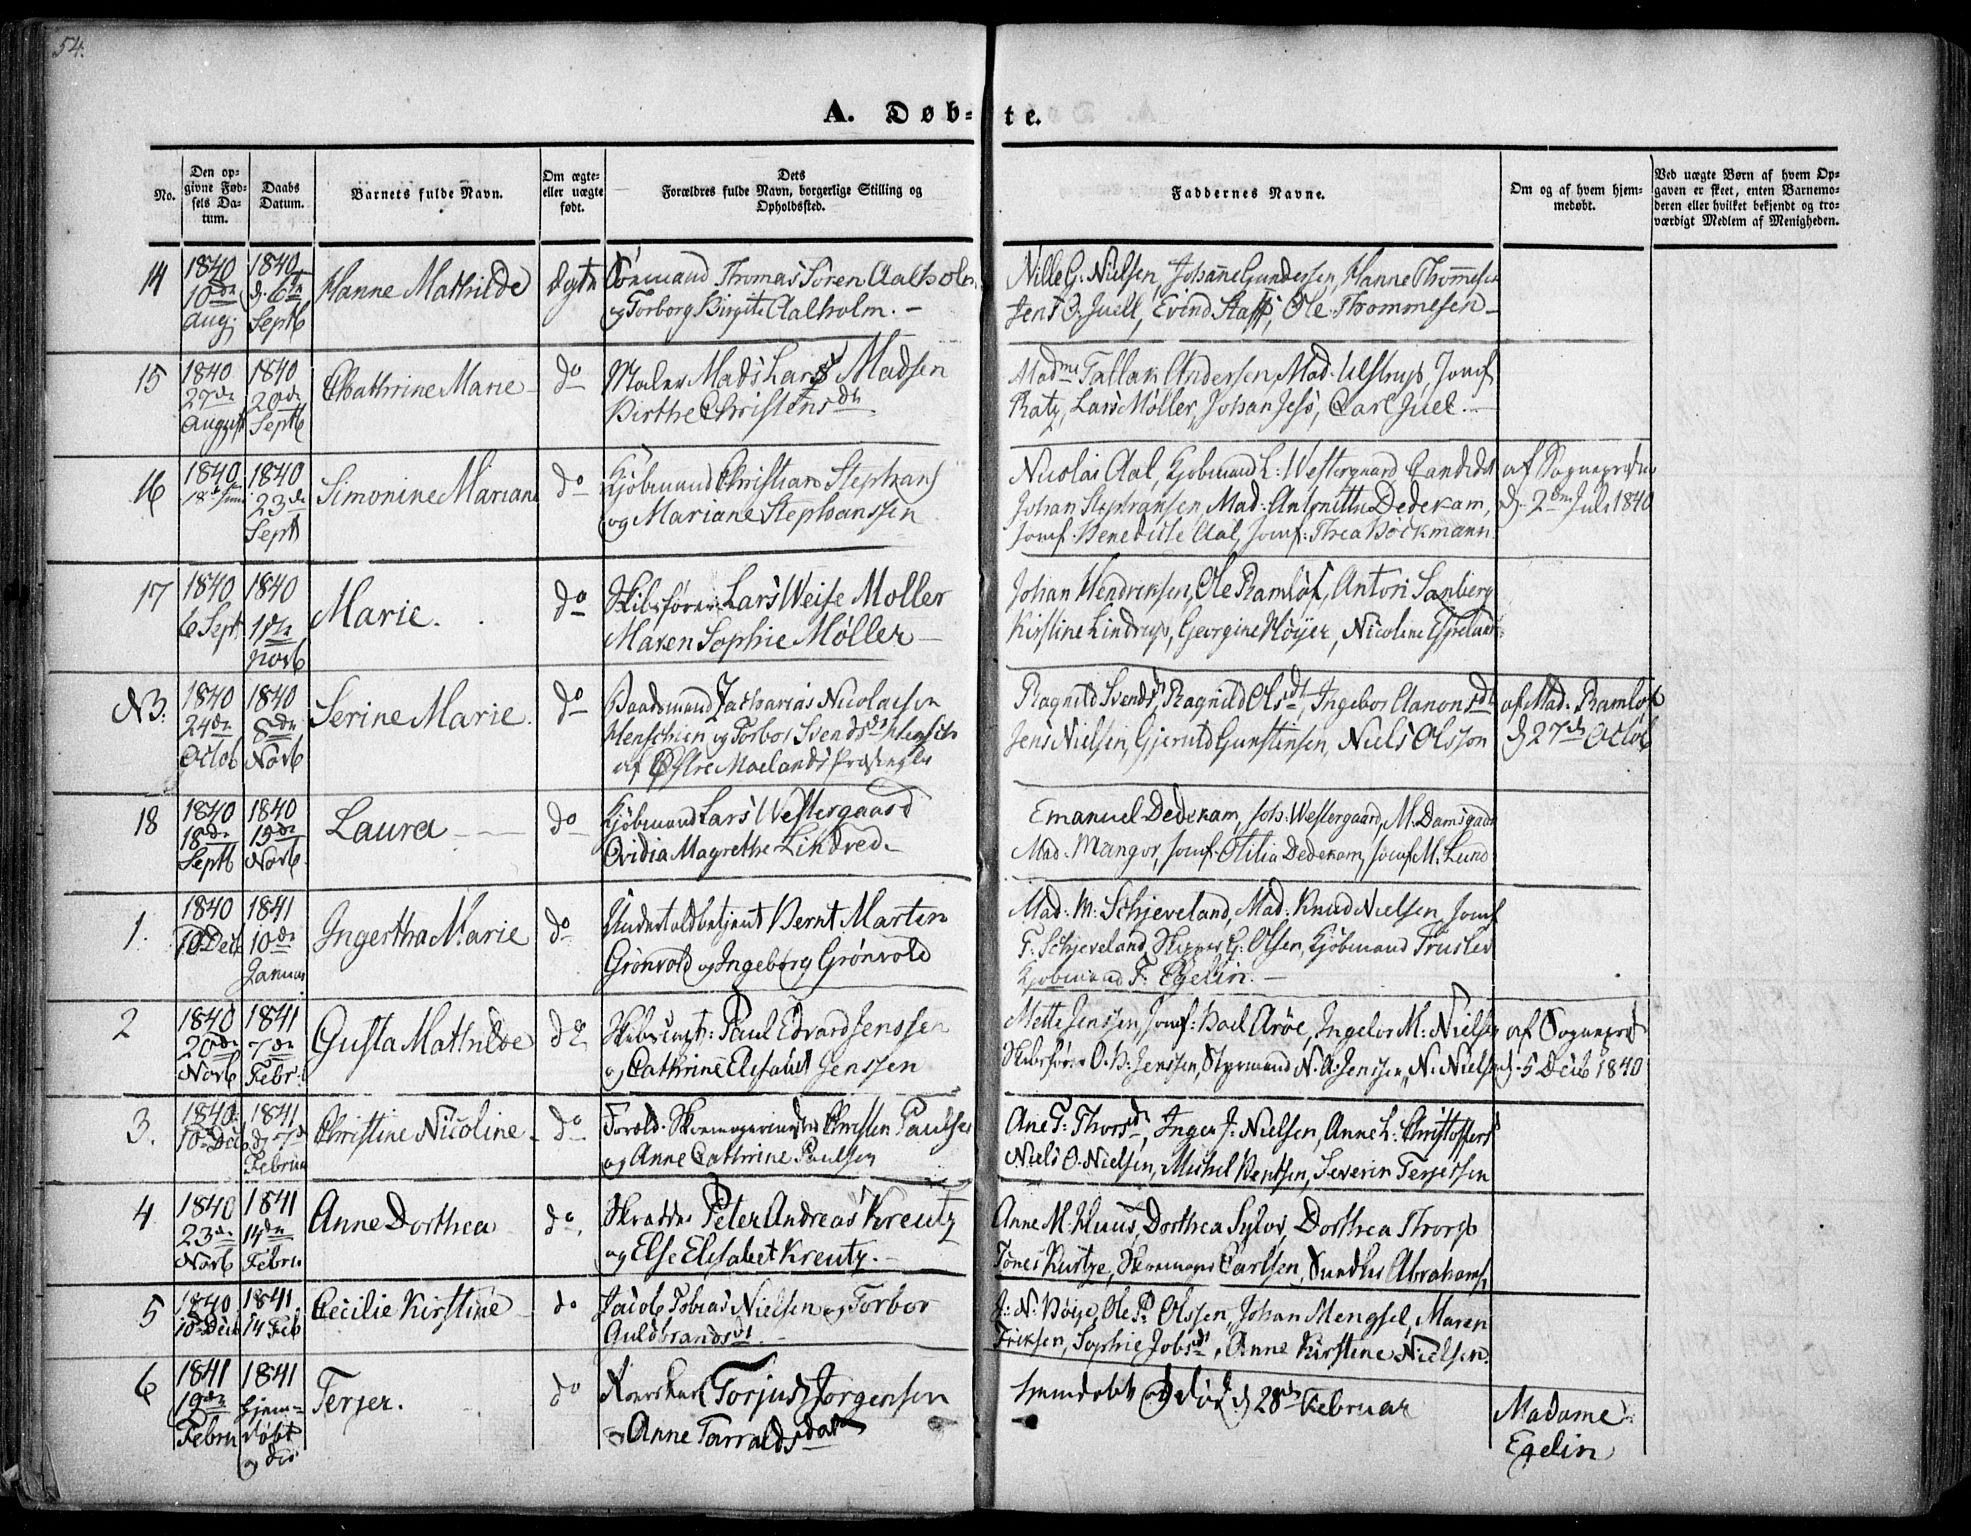 54.
A. Døb-te.
No.
Den op-
givne Fød-
sels Da-
tum.
Daabs
Datum.
Barnets fulde Navn.
Om ægte-
eller uægte
født.
Dets
Forældres fulde Navn, borgerlige Stilling og
Opholdssted.
Faddernes Navne.
Om og af hvem hjem-
medøbt.
Ved uægte Børn af hvem Op-
gaven er skeet, enten Barnemo-
deren eller hvilket bekjendt og tro-
værdigt Medlem af Menigheden.
14
1840
10de
Aug.
1840
d. 6te
Septb
Hanne Mathilde
Ægte
Thomas Søren Aalholm
og Torborg Birgite Aalholm.
Nille G. Nielsen, Johanne Gundersen, Hanne Thommesen
Jens O. Juell, Evind Staff, Ole Thommesen
15
1840
27de
August
1840
20de
Septb
Chathrine Marie
do
Maler Mads Lars Madsen
Birthe Christensdtr
Madme Tallak Andersen, Mad. Ulstrup, Jomf
Ratz, Lars Møller, Johan Jess, Carl Juel.
16
1840
18de Juni
1840
23de
Sept
Simonine Mariane
do
Kjøbmand Christian Stephans
og Mariane Stephanssen
Nicolai Aal, Kjøbmand L. Westergaard, Candidat
Johan Stephansen, Mad. Antonitte Dedekam,
Jomf. Benedicte Aal, Jomf. Thea Bockmann
af Sognepresten
d. 2den Juli 1840
17
1840
6 Sept.
1840
1ste
Novb
Marie.
do
Skibsfører Lars Weise Møller
Maren Sophie Møller
Johan Hendriksen, Ole Ramløf, Anton Sanberg
Kirstine Lindrup, Georgine Höyer, Nicoline
NB.
1840
24de
Octob
1840
8de
Novb
Serine Marie.
do
Baadsmand Zacharias Nicolaisen
Henschien og Torbor Svendsdt
af Østre Moelands Præstegjeld
Ragnild Svendsdt, Ragnild Olsdt, Ingebor Aanonsdt
Jens Nielsen, Gjeruld Gunstensen, Niels Olsson
af Mad. Ramløf
d 27de Octob
18
1840
18de
Septb
1840
15de
Novb.
Laura
do
Kjøbmand Lars Westergaard
Ovidia Magrethe Lindved.
Emanuel Dedekam, Joh. Westergaard, M. Damsgaard
Mad. Mangor, Jomf. Otilia Dedekam, Jomf M. Lund
1.
1840
10 Decb
1841
10de
Januar
Ingertha Marie
do
Undertoldbetjent Bernt Marten
Grønvold og Ingeborg Grønvold
Mad. M. Schjeveland, Mad. Knud Nielsen, Jomf
T. Schjeveland, Skipper G. Olsen, Kjøbmand Truslev
Kjøbmand F. Egelin.
2
1840
20de
Novb
1841
7de
Febr.
Gusta Mathilde
do
Skibscapt. Paul Edvard Jenssen
og Cathrine Elisabet Jenssen
Mette Jenssen, Jomf. Bael Arøe, Ingebor M. Nielsen
Skibsfører O. B. Jenssen, Styrmand N. A. Jenssen, N. Nielsen
af Sognepræst
d. 5 Decb 1840
3.
1840
10 Decb
1841
d. 7de
Februar
Christine Nicoline
do
Foræld. Skomagermester Christen Paulsen
og Anne Cathrine Paulsen
Ane T. Thorsdt, Inger J. Nielsen, Anne L. Christoffers
Niels O. Nielsen, Michel Bentsen, Severin Terjessen
4.
1840
23de
Novb
1841
14de
Febru
Anne Dorthea
do.
Skrædder Peter Andreas Kreutz
og Else Elisabet Kreutz.
Anne M. Huus, Dorthea Sylov, Dorthea Thorp
Tønes Kurtze, Skomager Carlsen, Abrahams.
5
1840
10 Decb
1841
14 Feb
Cecilie Kirstine
do
Jacob Tobias Nielsen og Torbor
Guldbrandsdt.
J. N. Böye, Ole P. Olssen, Johan Mengsel, Maren
Eriksen, Sophie Jobsdt, Anne Kirstine Nielsen.
6
1841
19de
Febru
1841
hjem-
døbt
og død
Terjer.
do
Torjus Jørgensen
og Anne Tarraldsdatr
hjemdøbt og død d 28de Februar
Madame
Egelin